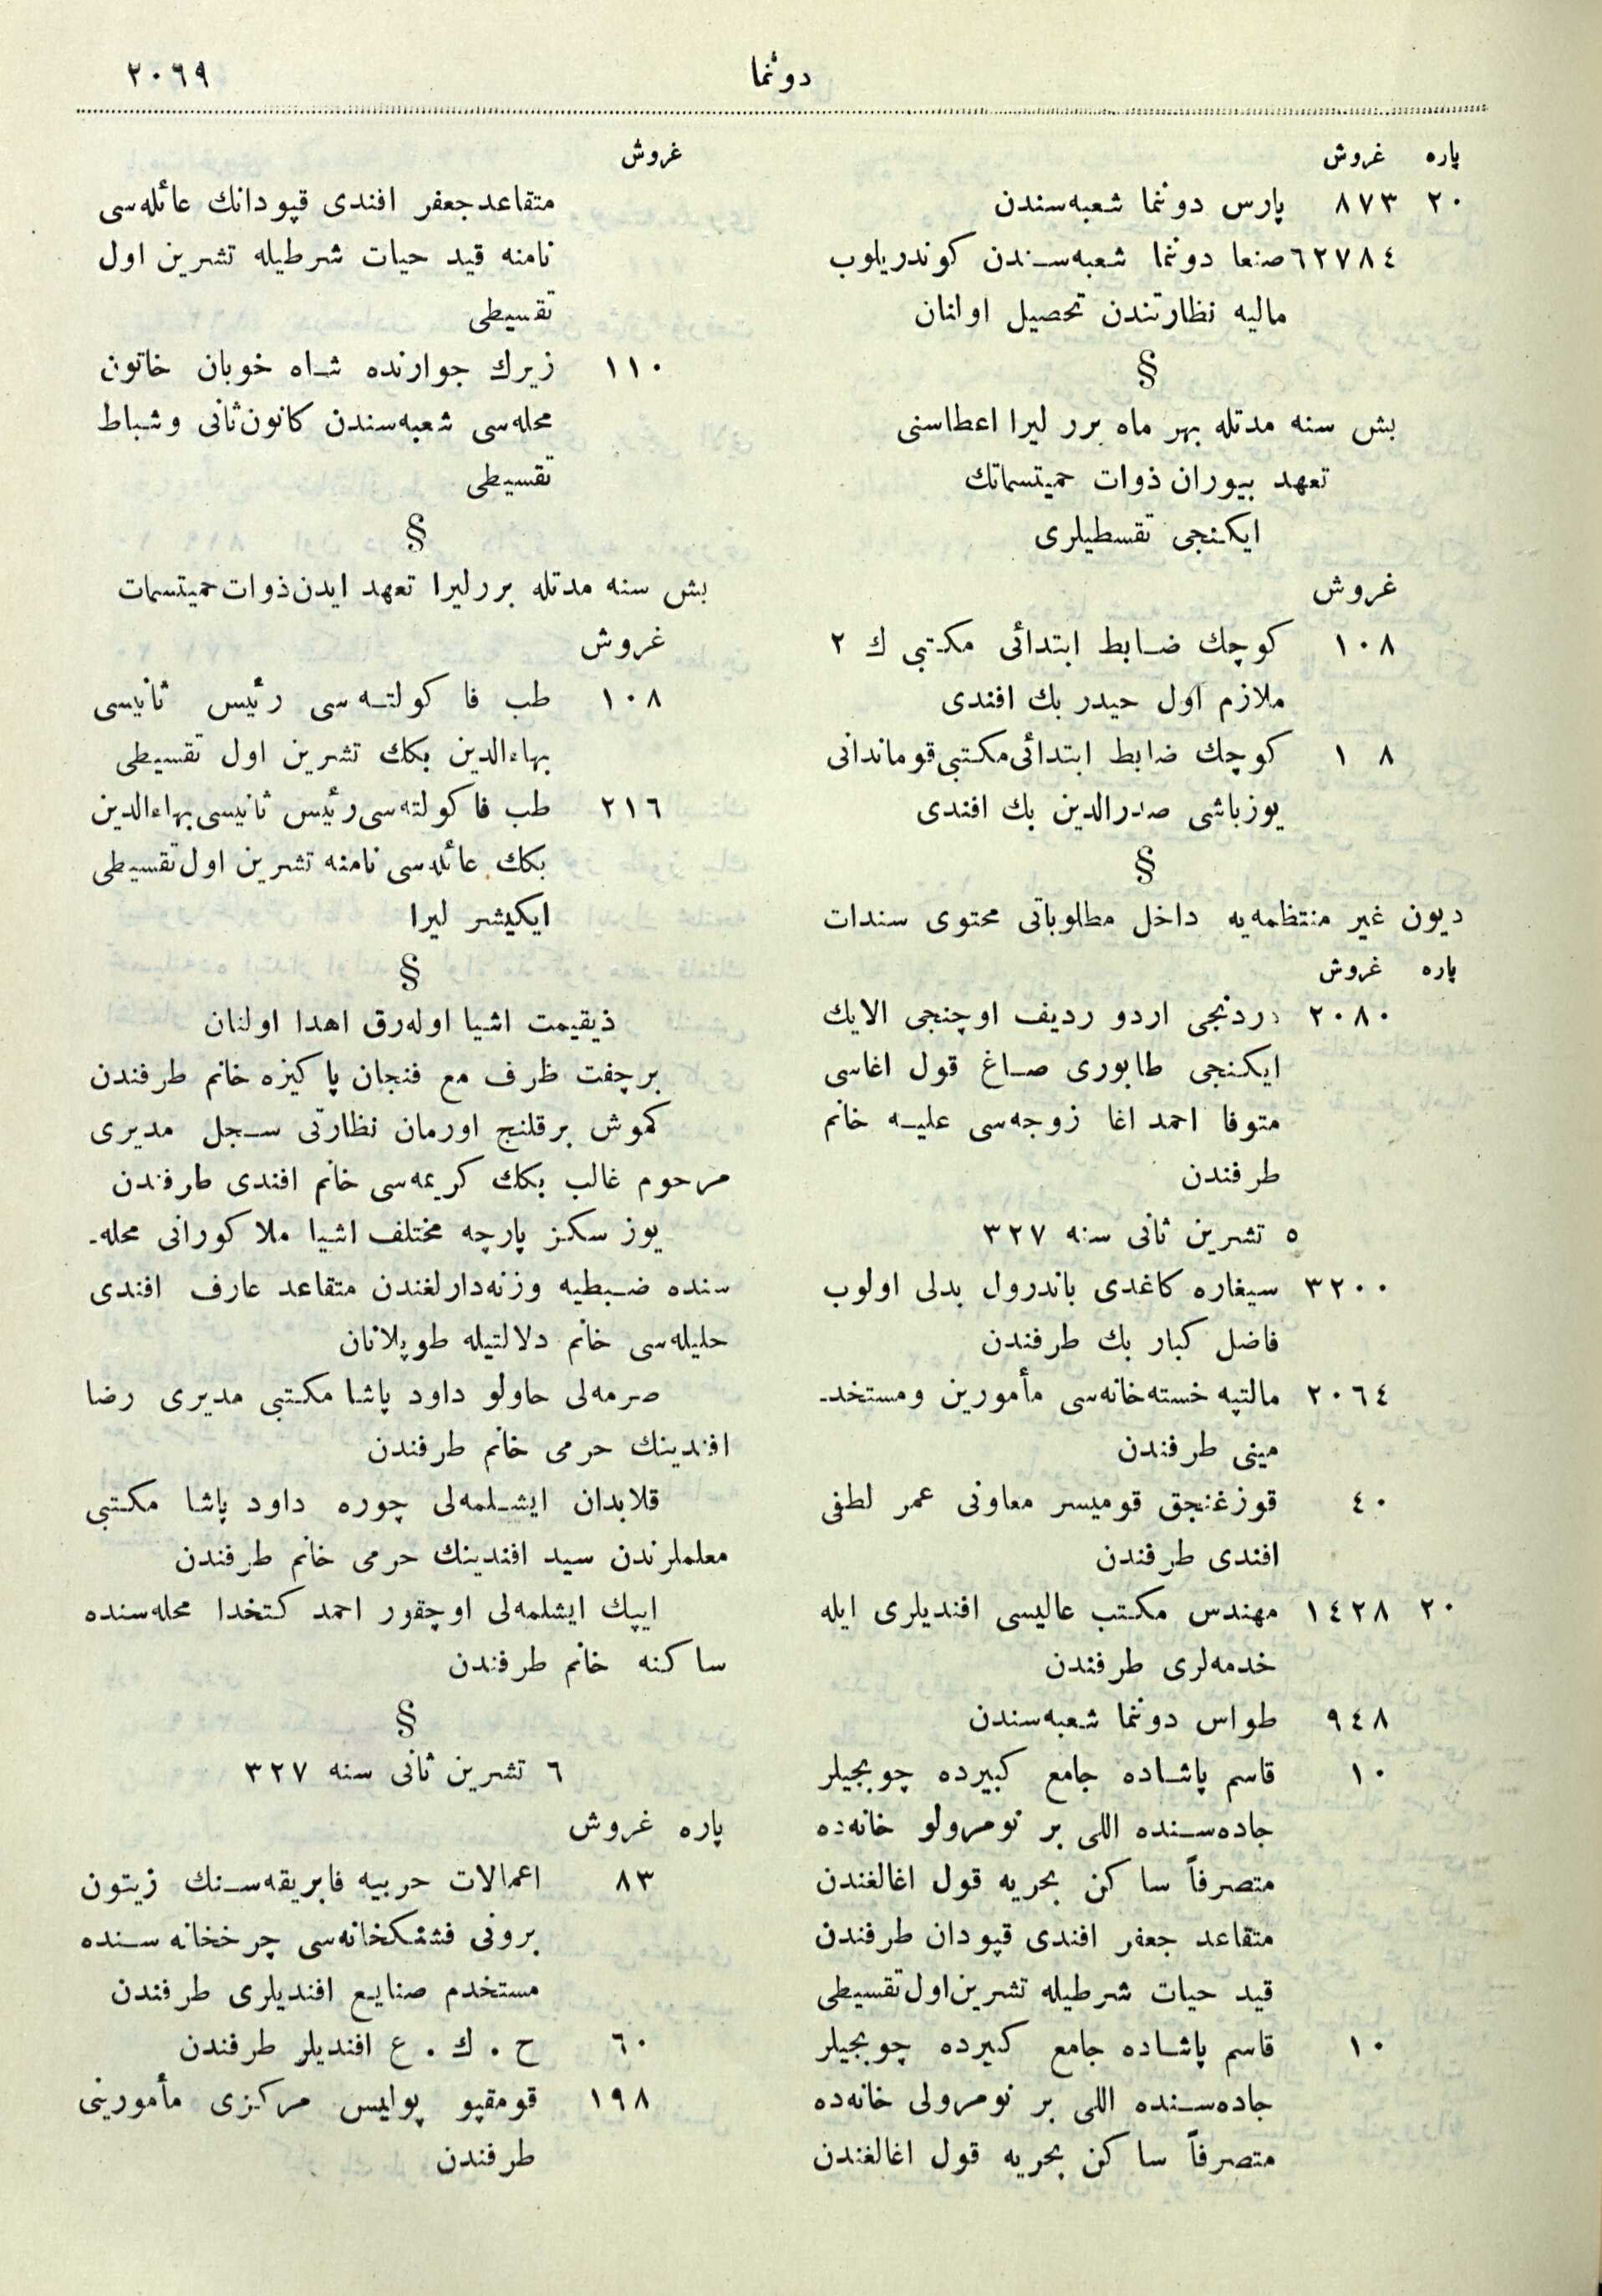 ٢٠٦٩
دوننما
پاره غروش
٢٠ ٨٧٣ پارس دوننما شعبه‌سندن
٦٢٧٨٤ صنعا دوننما شعبه‌سندن كوندريلوب
ماليه نظارتندن تحصيل اولنان
§
بش سنه مدتله بهر ماه برر ليرا اعطاسنى
تعهد بيوران ذوات حميتسماتك
ايكنجى تقسطيلرى
غروش
١٠٨ كوچك ضابط ابتدائى مكتبى ك ٢
ملازم اول حيدر بك افندى
١ ٨ كوچك ضابط ابتدائى مكتبى قوماندانى
يوزباشى صدرالدين بك افندى
§
ديون غير منتظمه‌يه داخل مطلوباتى محتوى سندات
پاره غروش
٢٠٨٠ دردنجى اردو رديف اوچنجى الايك
ايكنجى طابورى صاغ قول اغاسى
متوفا احمد اغا زوجه‌سى عليه خانم
طرفندن
٥ تشرين ثانى سنه ٣٢٧
٣٢٠٠ سيغاره كاغدى باندرول بدلى اولوب
فاضل كبار بك طرفندن
٢٠٦٤ مالتپه خسته‌خانه‌سى مأمورين ومستخد-
مينى طرفندن
٤٠ قوزغنجق قوميسر معاونى عمر لطفى
افندى طرفندن
٢٠ ١٤٢٨ مهندس مكتب عاليسى افنديلرى ايله
خدمه‌لرى طرفندن
٩٤٨ طواس دوننما شعبه‌سندن
١٠ قاسم پاشاده جامع كبيرده چوبجيلر
جاده‌سنده اللى بر نومرولو خانه‌ده
متصرفاً ساكن بحريه قول اغالغندن
متقاعد جعفر افندى قپودان طرفندن
قيد حيات شرطيله تشرين‌اول تقسيطى
١٠ قاسم پاشاده جامع كبيرده چوبجيلر
جاده‌سنده اللى بر نومرولى خانه‌ده
متصرفاً ساكن بحريه قول اغالغندن
غروش
متقاعد جعفر افندى قپودانك عائله‌سى
نامنه قيد حيات شرطيله تشرين اول
تقسيطى
١١٠ زيرك جوارنده شاه خوبان خاتون
محله‌سى شعبه‌سندن كانون‌ثانى وشباط
تقسيطى
§
بش سنه مدتله برر ليرا تعهد ايدن ذوات حميتسمات
غروش
١٠٨ طب فاكولته‌سى رئيس ثانيسى
بهاءالدين بكك تشرين اول تقسيطى
٢١٦ طب فاكولته‌سى رئيس ثانيسى بهاءالدين
بكك عائله‌سى نامنه تشرين اول تقسيطى
ايكيشر ليرا
§
ذيقيمت اشيا اوله‌رق اهدا اولنان
برچفت ظرف مع فنجان پاكيزه خانم طرفندن
كموش برقلنج اورمان نظارتى سجل مديرى
مرحوم غالب بكك كريمه‌سى خانم افندى طرفندن
يوز سكز پارچه مختلف اشيا ملا كورانى محله-
سنده ضبطيه وزنه‌دارلغندن متقاعد عارف افندى
حليله‌سى خانم دلالتيله طوپلانان
صرمه‌لى حاولو داود پاشا مكتبى مديرى رضا
افندينك حرمى خانم طرفندن
قلابدان ايشلمه‌لى چوره داود پاشا مكتبى
معلملرندن سيد افندينك حرمى خانم طرفندن
ايپك ايشلمه‌لى اوچقور احمد كتخدا محله‌سنده
ساكنه خانم طرفندن
§
٦ تشرين ثانى سنه ٣٢٧
پاره غروش
٨٣ اعمالات حربيه فابريقه‌سنك زيتون
برونى فشنكخانه‌سى چرخخانه‌سنده
مستخدم صنايع افنديلرى طرفندن
٦٠ ح . ك . ع افنديلر طرفندن
١٩٨ قومقپو پوليس مركزى مأمورينى
طرفندن